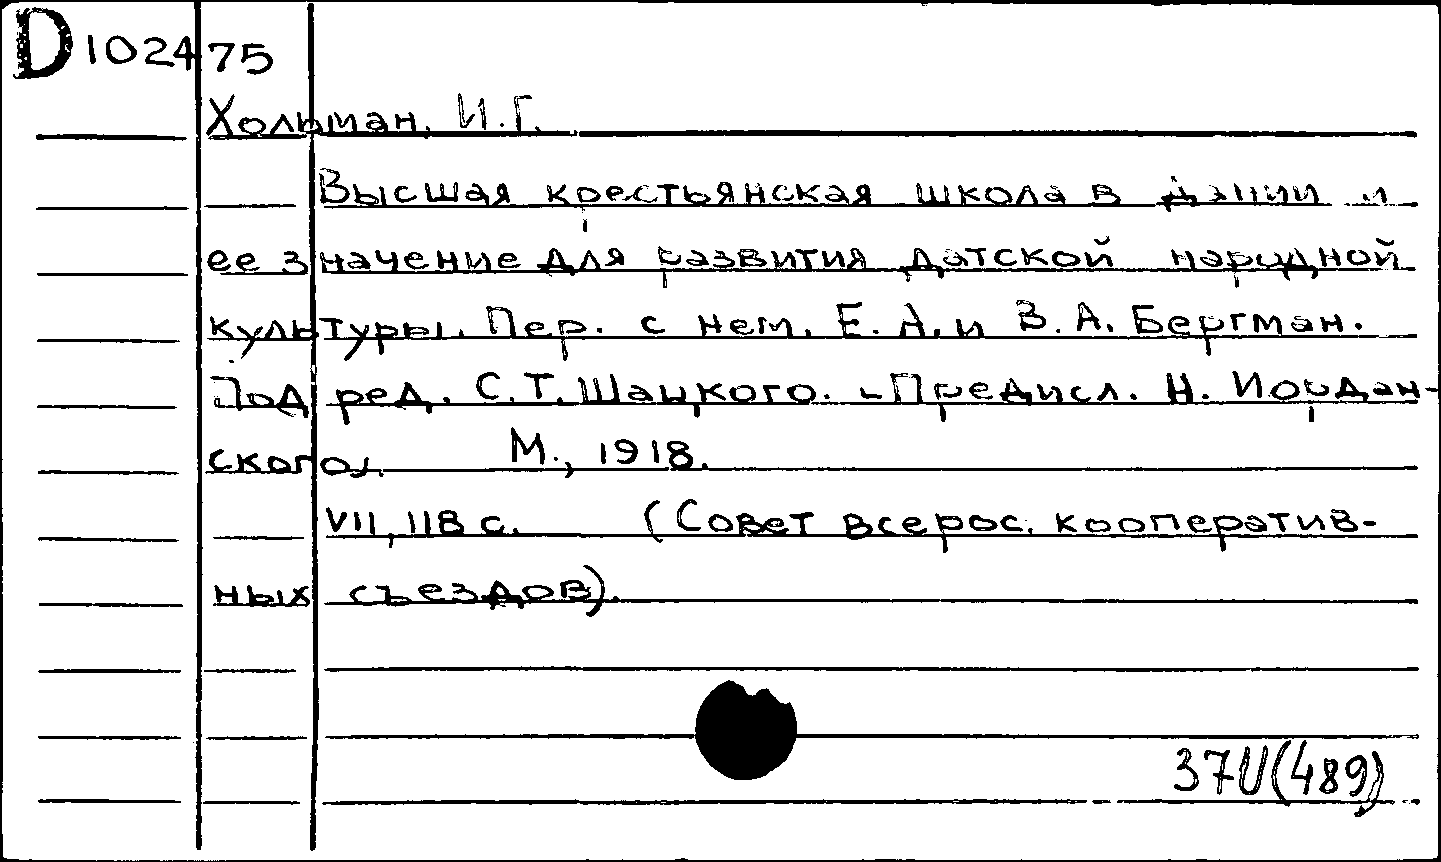 D102475
Хольман, И.Г.
Высшая крестьянская школа в Дании и
ее значение для развития датской народной
культуры. Пер. с нем. Е.А. и В.А. Бергман.
Под ред. С.Т. Шацкого. -Предисл. Н. Иордан-
ского. М., 1918.
VII, 118 с. (Совет всерос. кооператив-
ных съездов).
37U(489)